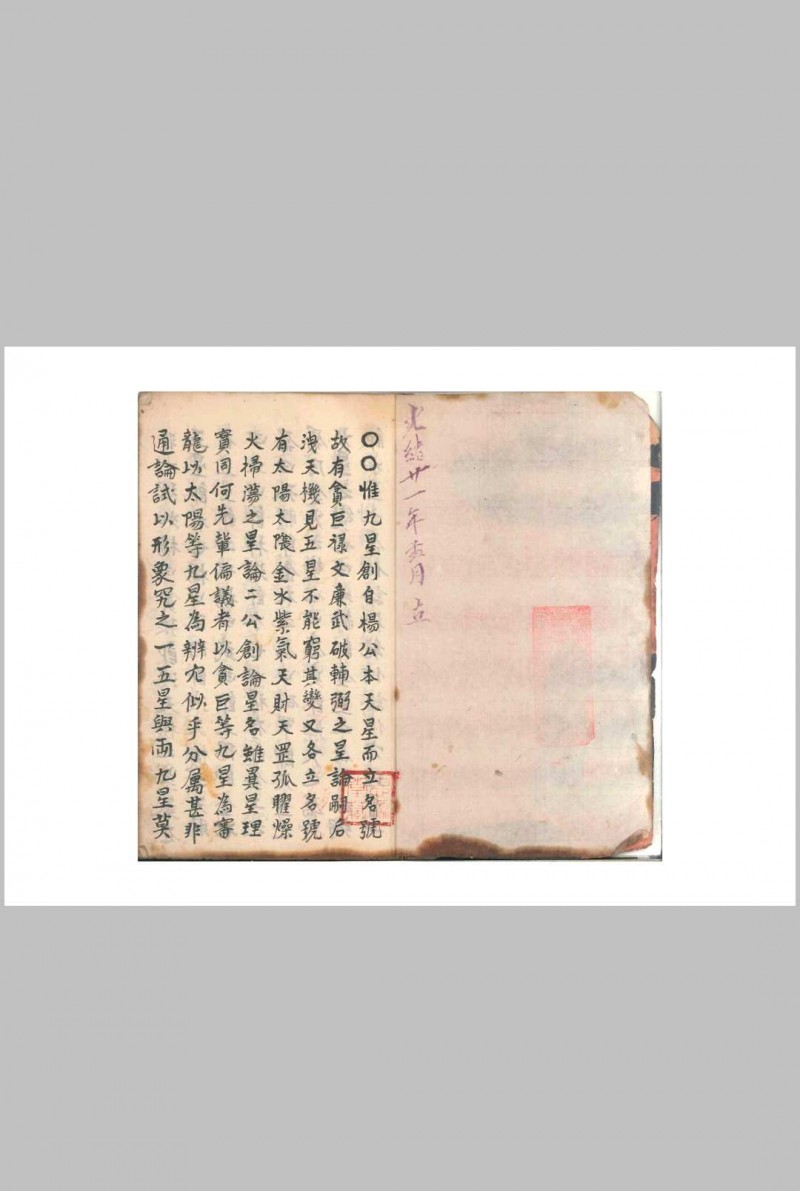 光緒廿一年 月 立
〇〇惟九星創自楊公本天星而立名號
故有貪巨祿文廉武破輔弼之星論嗣后
洩天機見五星不能窮其變又各立名號
有太陽太陰金水紫氣天財天罡孤曜燥
火掃蕩之星論二公創論星名雖異星理
實同何先輩偏議者以貪巨等九星為審
龍以太陽等九星為辨穴似乎分属甚非
通論試以形象究之一五星與両九星莫